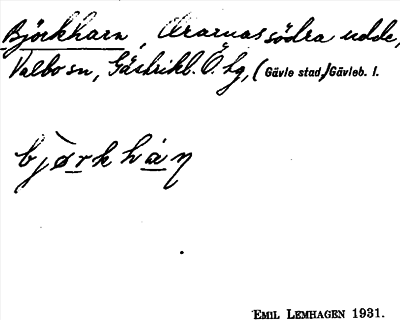 Björkharn, Orarnas södra udde,
Valbo sn, Gästrikl. Ö. hg, (Gävle stad,) Gävleb. l.
bjørkhàn
EMIL LEMHAGEN 1931.